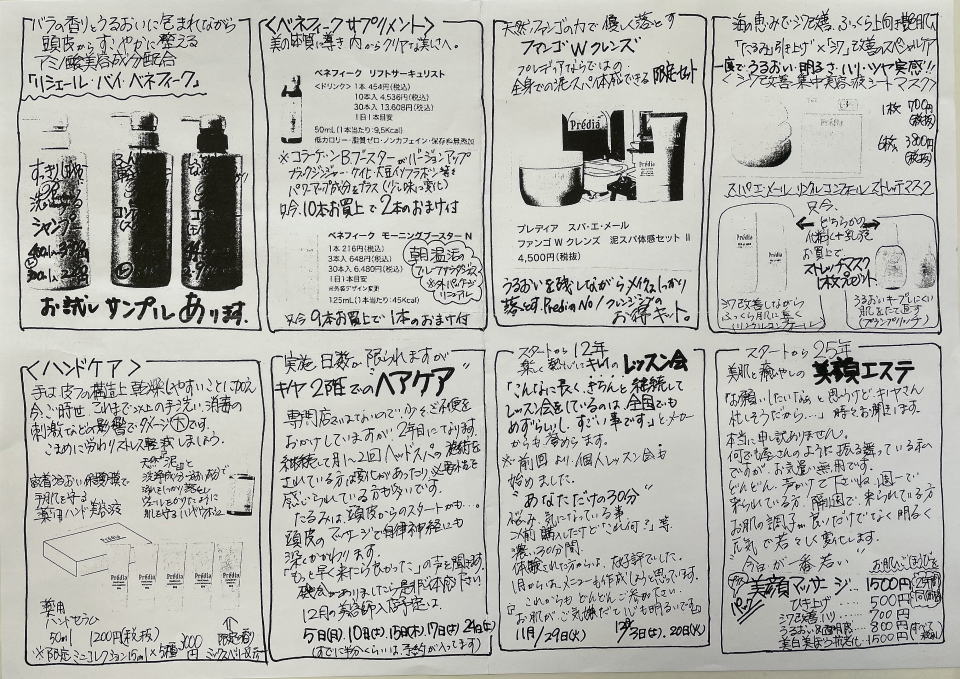 バラの香りとうるおいに包まれながら
頭皮からすこやかに整える
アミノ酸美容成分配合
「リシェール・バイ・ベネフィーク」
すっきり
洗い
シャンプー
お試しサンプルあります.
<ベネフィークサプリメント>
美の体質に導き内からクリアな潤いへ。
ベネフィーク リフトサーキュリスト
<ドリンク> 1本 454円(税込)
10本入 4,536円(税込)
30本入 13,608円(税込)
1日1本目安
50mL(1本当たり:9.5Kcal)
低カロリー・脂質ゼロ・ノンカフェイン・保存料無添加
※コラーゲンBブースターがバージョンアップ
ブラックジンジャー・ケイヒ・大豆イソフラボン等を
パワーアップ成分をプラス(少し味っ変化)
只今、10本お買上で2本のおまけ付
ベネフィーク モーニングブースター N
1本 216円(税込)
3本入 648円(税込)
30本入 6,480円(税込)
1日1本目安
※外装デザイン変更
125mL(1本当たり:45Kcal)
朝温活
グレープフルーツ
※外パッケージ
リニューアル
只今9本お買上で1本のおまけ付
天然ファンゴの力で優しく落とす
ファンゴWクレンズ
プレディアならではの
全身での泥スパ体感できる限定セット
Prédia
プレディア スパ・エ・メール
ファンゴ W クレンズ 泥スパ体感セット II
4,500円(税抜)
うるおいを残しながらメイクもしっかり
落とす.PrediaNo1クレンジングの
お得キット。
海の恵みでシワ改善、ふっくら上向き艶肌へ
「たるみ」引き上げ×「シワ」改善のスペシャルケア
一度でうるおい・明るさ・ハリ・ツヤ実感!!
<シワ改善集中美容液シートマスク>
1枚 700円
(税抜)
6枚 3800円
(税抜)
スパ・エ・メール リンクルコンフォール ストレッチマスク
只今、
どちらかの
化粧水+乳液
お買上で
ストレッチマスク
1枚プレゼント
シワ改善しながら
ふっくら肌に導く
(リンクルコンフォール)
うるおいキープしにくい
肌を立て直す
(ブランコンフォート)
<ハンドケア>
手は皮フの構造上乾燥しやすいことに加え
今、ご時世、これまで以上の手洗い、消毒の
刺激などの影響でダメージ大です。
こまめに労わりストレス軽減しましょう。
密着潤い保護膜で
手肌を守る
薬用ハンド美容液
天然泥と
洗浄成分
汚れをしっかり落とし
肌を守るハンドソープ
Prédia
薬用
ハンドセラム
50ml 1200円(税抜)
※限定ミニコレクション15ml×5種
限定香り
実施日数が限られますが
キヤ2階での"ヘアケア"
専門店ではないので少々ご不便を
おかけしていますが、2年目になります.
継続して月1~2回ヘッドスパの施術を
されている方は変化があったり必要性を
感じられている方も多いです。
たるみは、頭皮からのスタートかも…。
頭皮のマッサージで自律神経にも
深くかかわります。
「もっと早く来たら良かった」の声を聞きます。
機会がありましたら是非ご体感下さい
12月の美容師入店予定は、
5日(月)、10日(土)、15日(木)、17日(土)、24日(土)
(すでに半分くらいは予約が入ってます)
スタートから12年
楽しく賢いにキレイのレッスン会
「こんなに長く、きちんと継続して
レッスン会をしているのは、全国でも
めずらしいし、すごい事です」とメーカー
からも誉めらます。
※前回より、個人レッスン会も
始めました。
"あなただけの30分"
悩み、気になっている事
以前購入したけど「これ何?」等
濃い30分間.
体感された方からは、大好評でした。
1月からは、メニューも作成しようと思っています。
これからもどんどんご参加下さい
「お肌がご気嫌だと心も明るいです」
11月/29日(火) 12月3日(土)、20日(火)
スタートから25年
美肌と癒やしの美顔エステ
「お願いしたいなぁと思うけどキヤさん
忙しそうだから…」時々お聞きします。
本当に申し訳ありません。
何でも屋さんのように振る舞っている私
ですが、お気遣い無用です。
どんどん、声かけて下さいね.週一で
来られている方、隔週で来られている方
お肌の調子が良いだけでなく明るく
元気で若々しく変化します。
"今日が一番若い"
お肌にごほうびを
美顔マッサージ… 1500円
ひき上げ…… 500円
シワ改善、ハリ… 700円
うるおい&透明感…… 800円
1500円